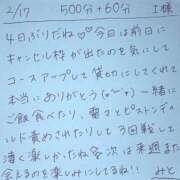 2/17　500分+60分　I様
4日ぶりだね♡♡今日は前日に
キャンセル枠が出たのを気にして
コースアップして貸切にしてくれて
本当にありがとう(⌒▽⌒)一緒に
ご飯食べたり、響てとピストンディ
ルド責めされたりして3回転して
凄く楽しかったね♡次は来週また
会えるのを楽しみにしてるね!!　みと